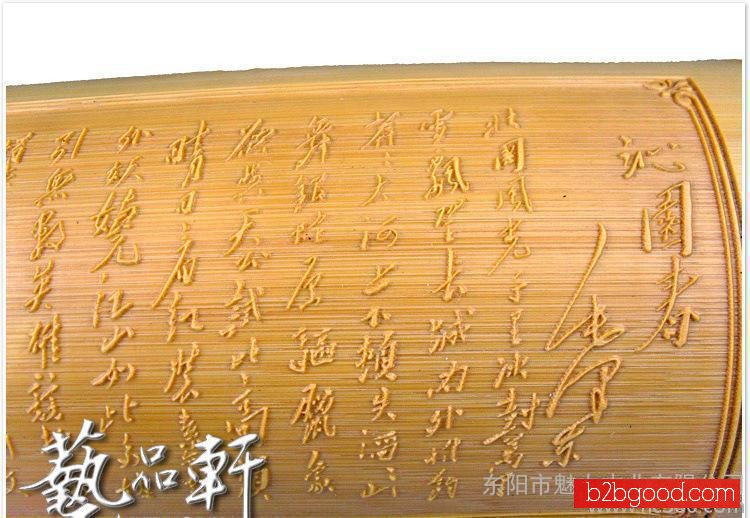 沁園春
毛泽东
北国风光千里冰封萬
雪飘望长城内外惟馀
莽々大河上下顿失滔々
舞银蛇原驱腊象
欲与天公试比高须
晴日看红装素
外娆江山如此多娇
引无数英雄竞
藝品軒
东阳市魅力
b2bgood.com